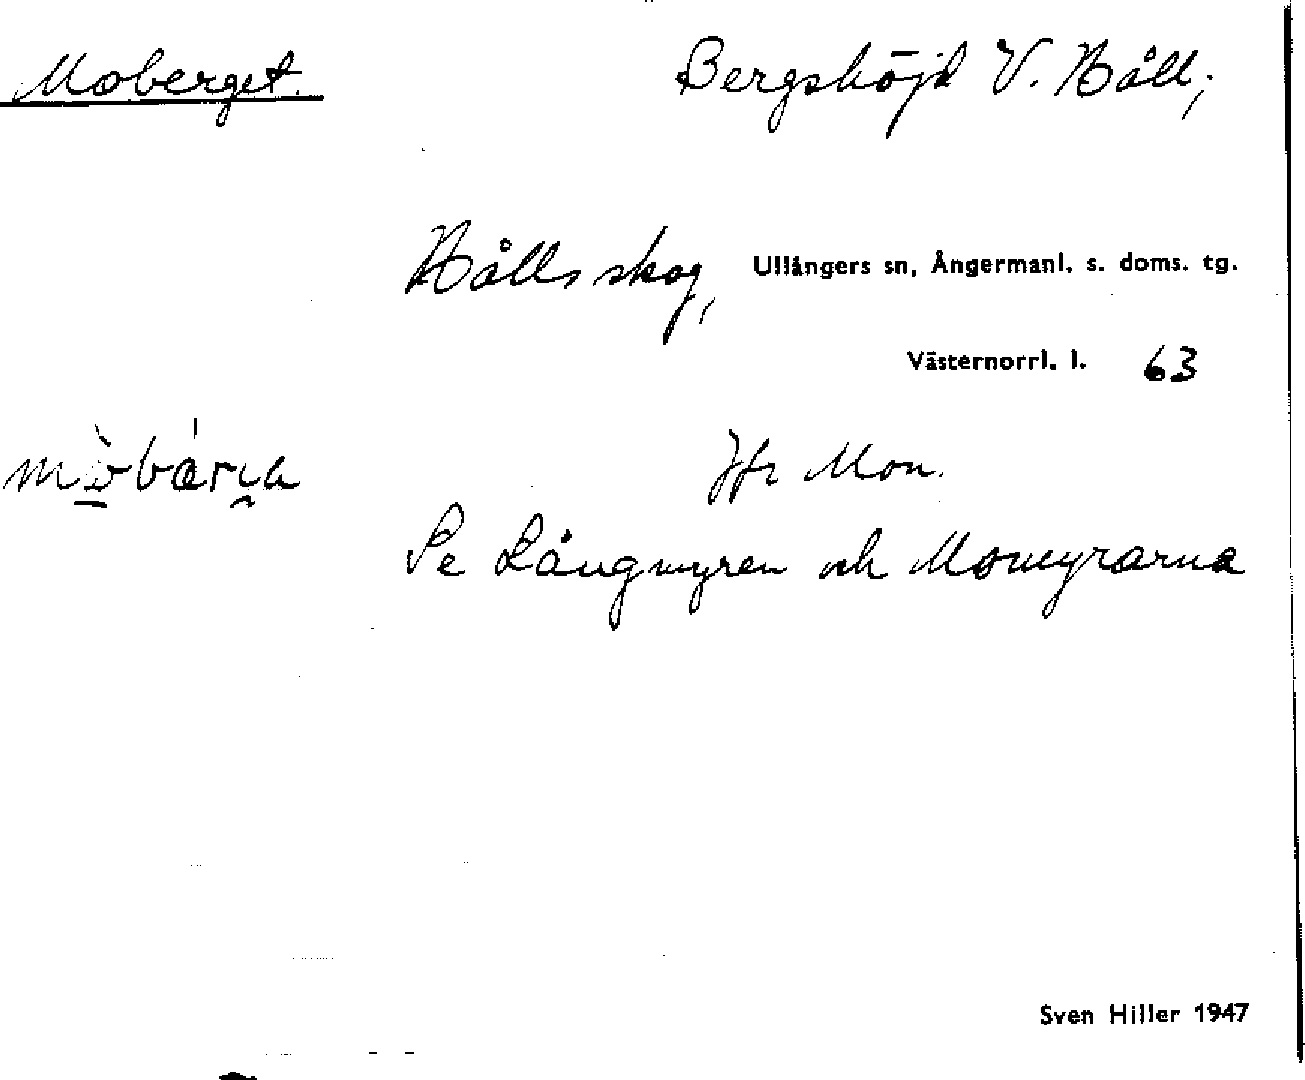 Moberget. Bergshöjd V. Håll;
Hålls skog, Ullångers sn, Ångermanl. s. doms. tg.
Västernorrl. l. 63
Jfr Mon.
Se Långmyren och Momyrarna
Sven Hiller 1947